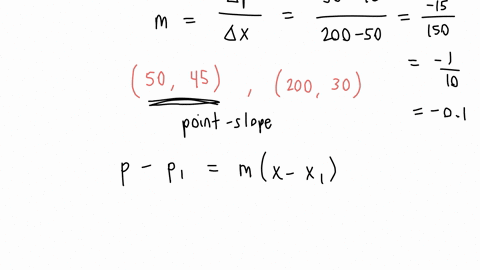 m = Δp/Δx = 30-45/200-50 = -15/150
= -1/10
(50, 45), (200, 30)
= -0.1
point-slope
p - p₁ = m(x - x₁)